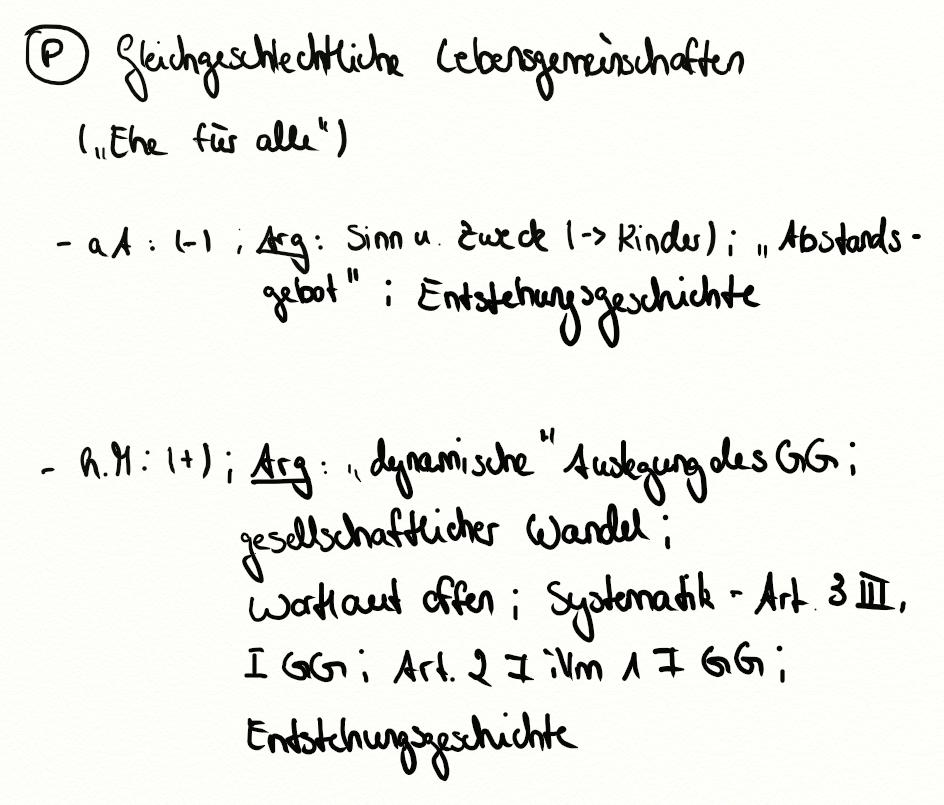 Ⓟ Gleichgeschlechtliche Lebensgemeinschaften
(„Ehe für alle")
- aA: (-) ; Arg: Sinn u. Zweck (-> Kinder) ; „Abstands-
gebot" ; Entstehungsgeschichte
- h.M: (+) ; Arg: „dynamische" Auslegung des GG ;
gesellschaftlicher Wandel ;
Wortlaut offen ; Systematik - Art. 3 III,
I GG ; Art. 2 I iVm 1 I GG ;
Entstehungsgeschichte